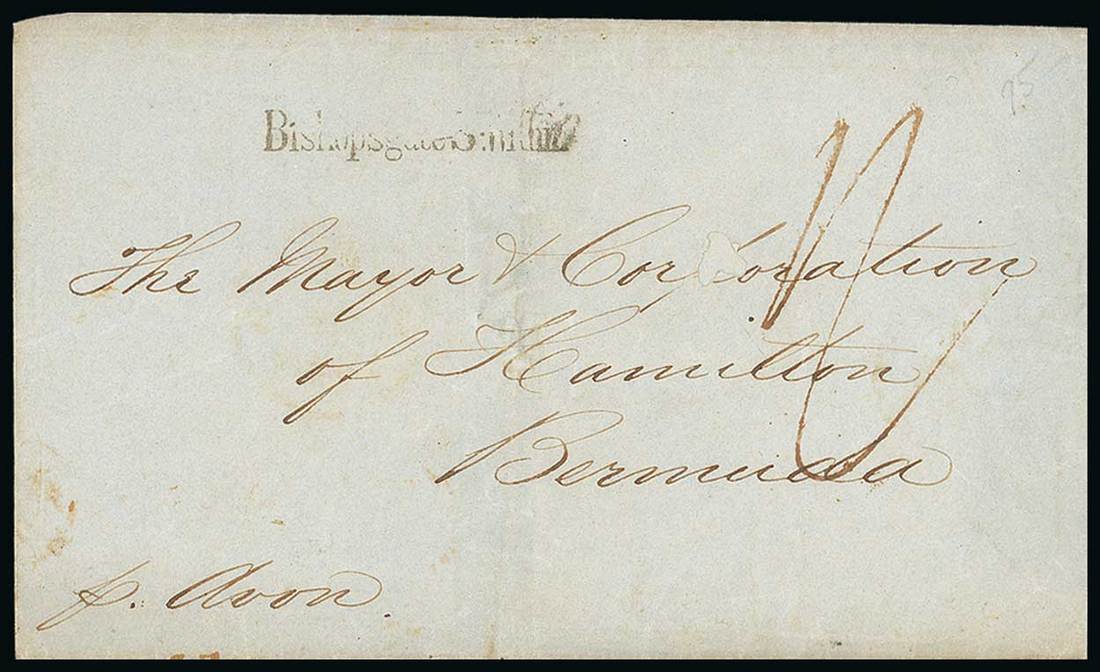 Bishopsgate S:
The Mayor & Corporation
of Hamilton
Bermuda
p. Avon.